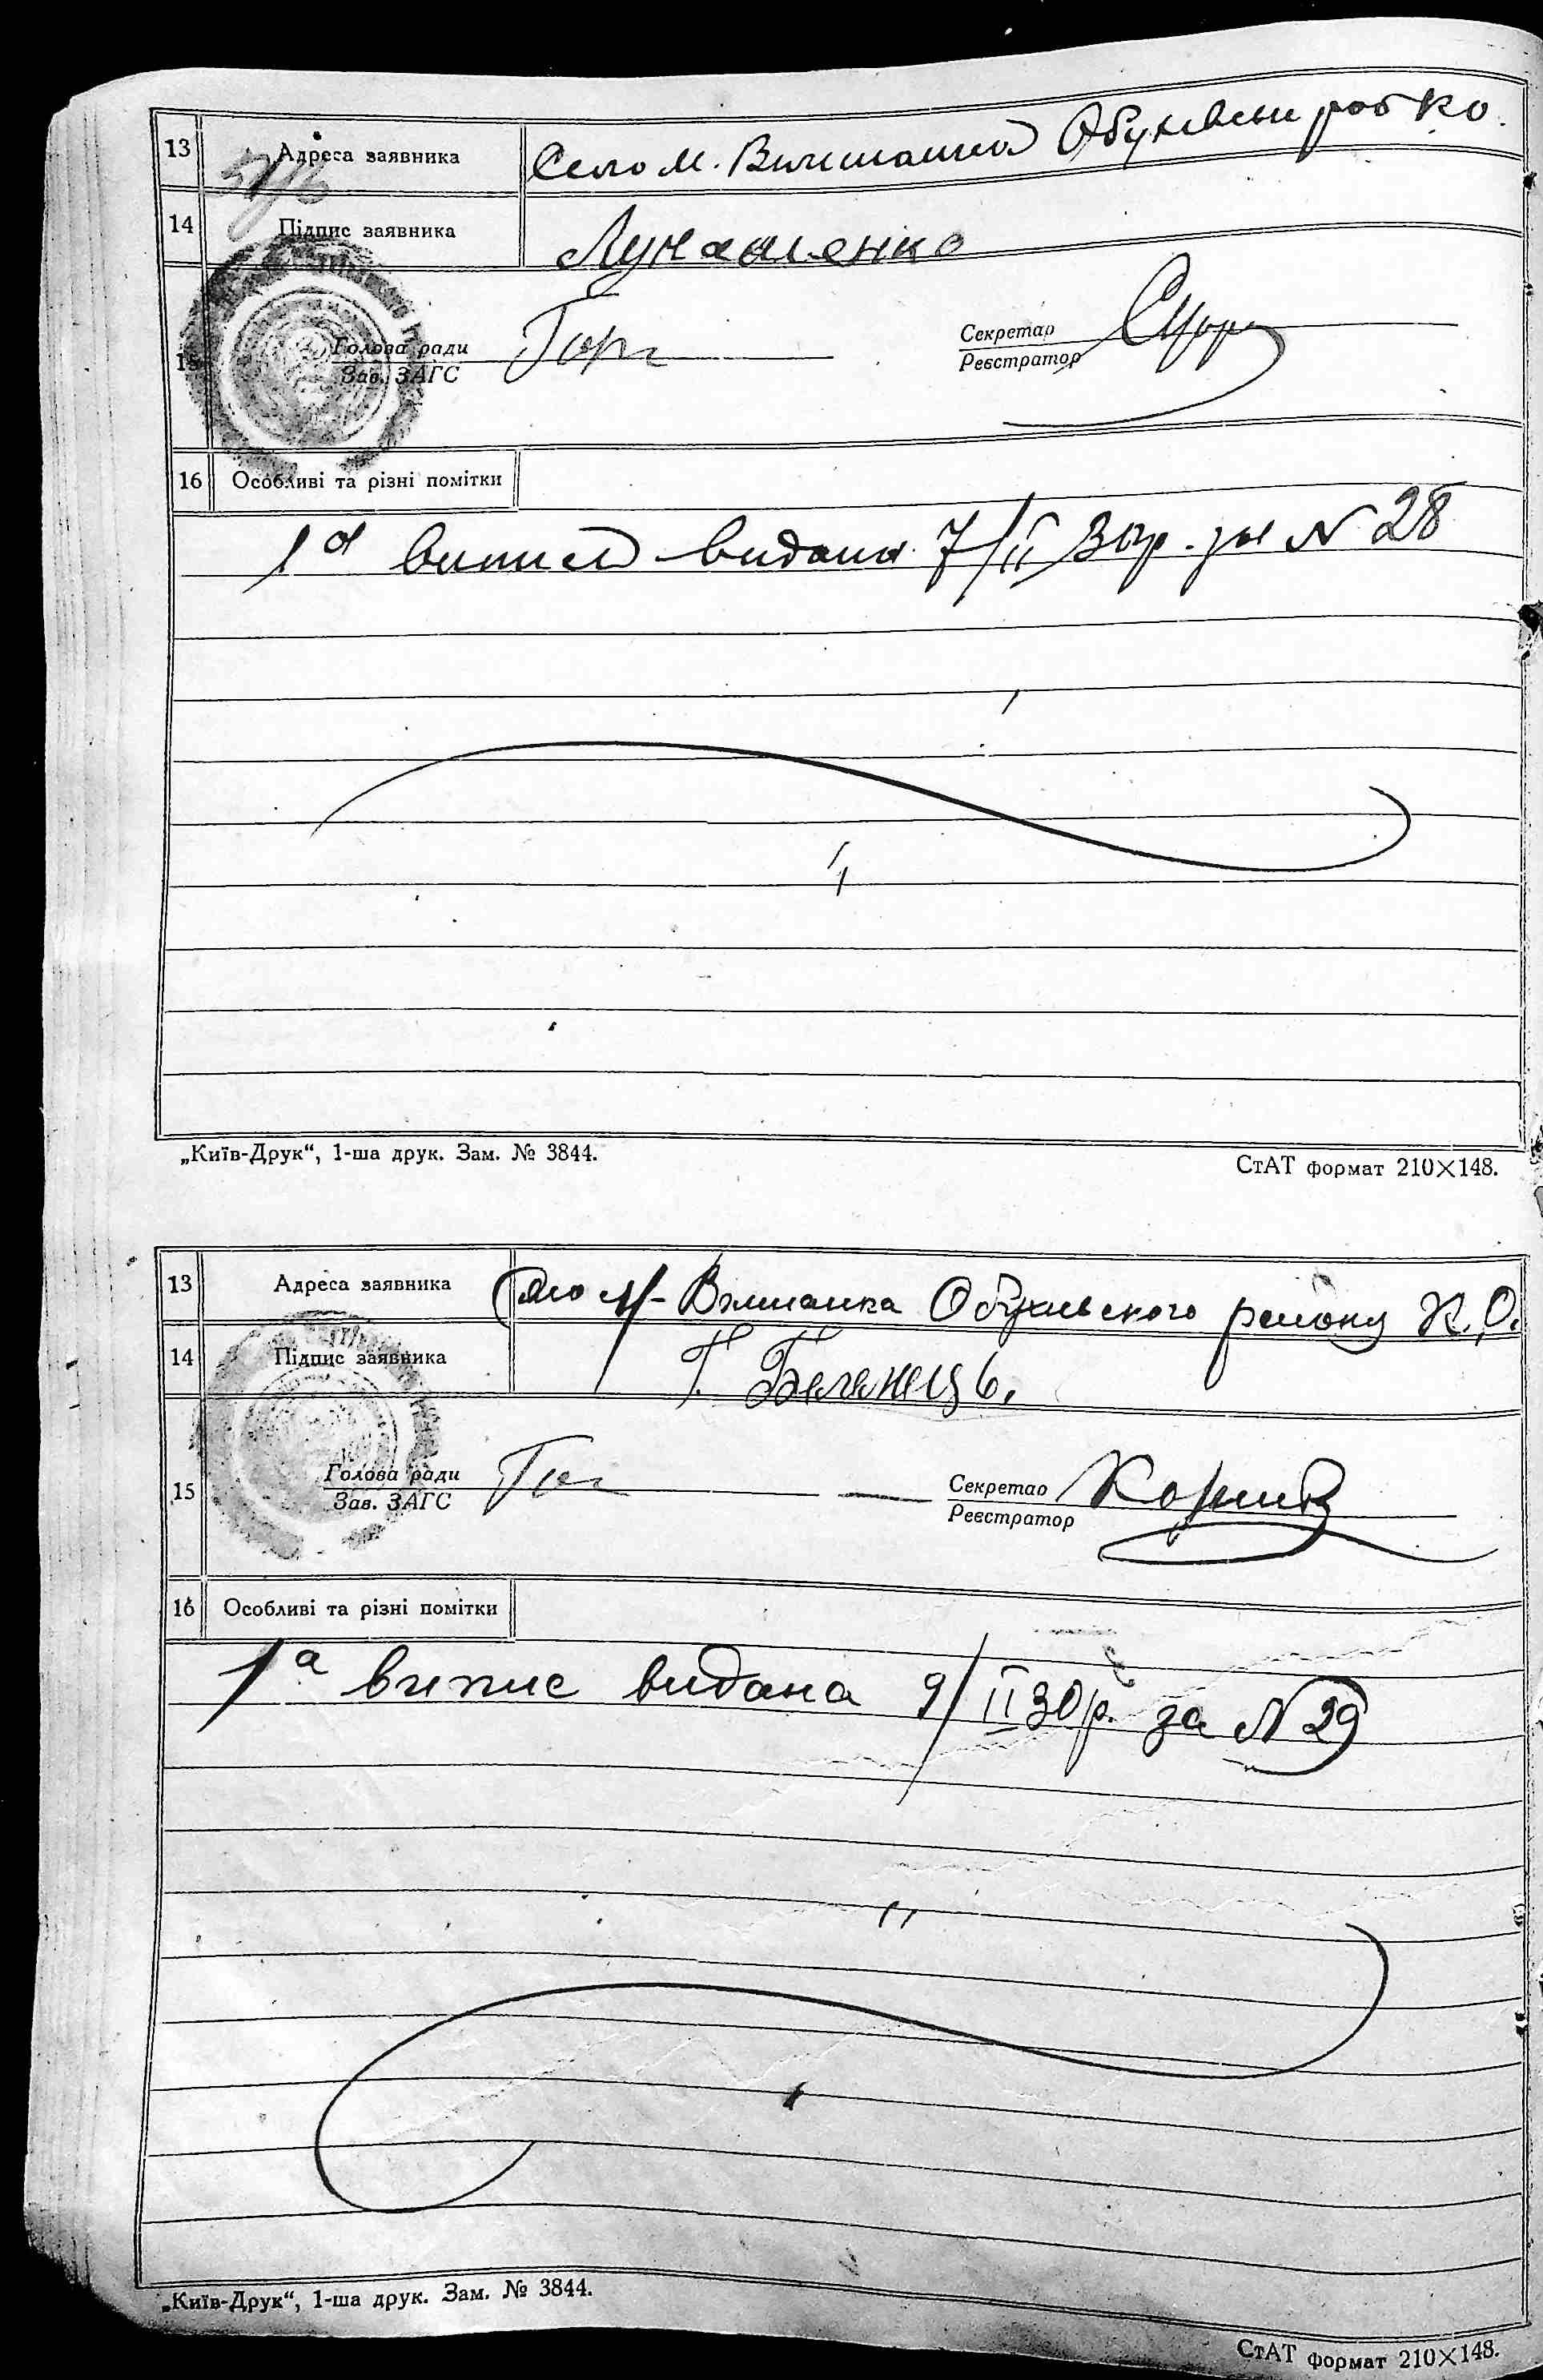 13 Адреса заявника Село М. Вильшанка Обухівськ рай К.О.
14 Підпис заявника Лукашенко
15 Голова ради Секретар
Зав. ЗАГС Реєстратор
16 Особливі та різні помітки
1а випись видана 7/II 30р. за N 28
„Київ-Друк“, 1-ша друк. Зам. № 3844.
СтАТ формат 210×148.
13 Адреса заявника Село М-Вільшанка Обухівського району К.О.
14 Підпис заявника Г.
15 Голова ради Секретар
Зав. ЗАГС Реєстратор
16 Особливі та різні помітки
1а випис видана 9/II 30р. за N 29
„Київ-Друк“, 1-ша друк. Зам. № 3844.
СтАТ формат 210×148.